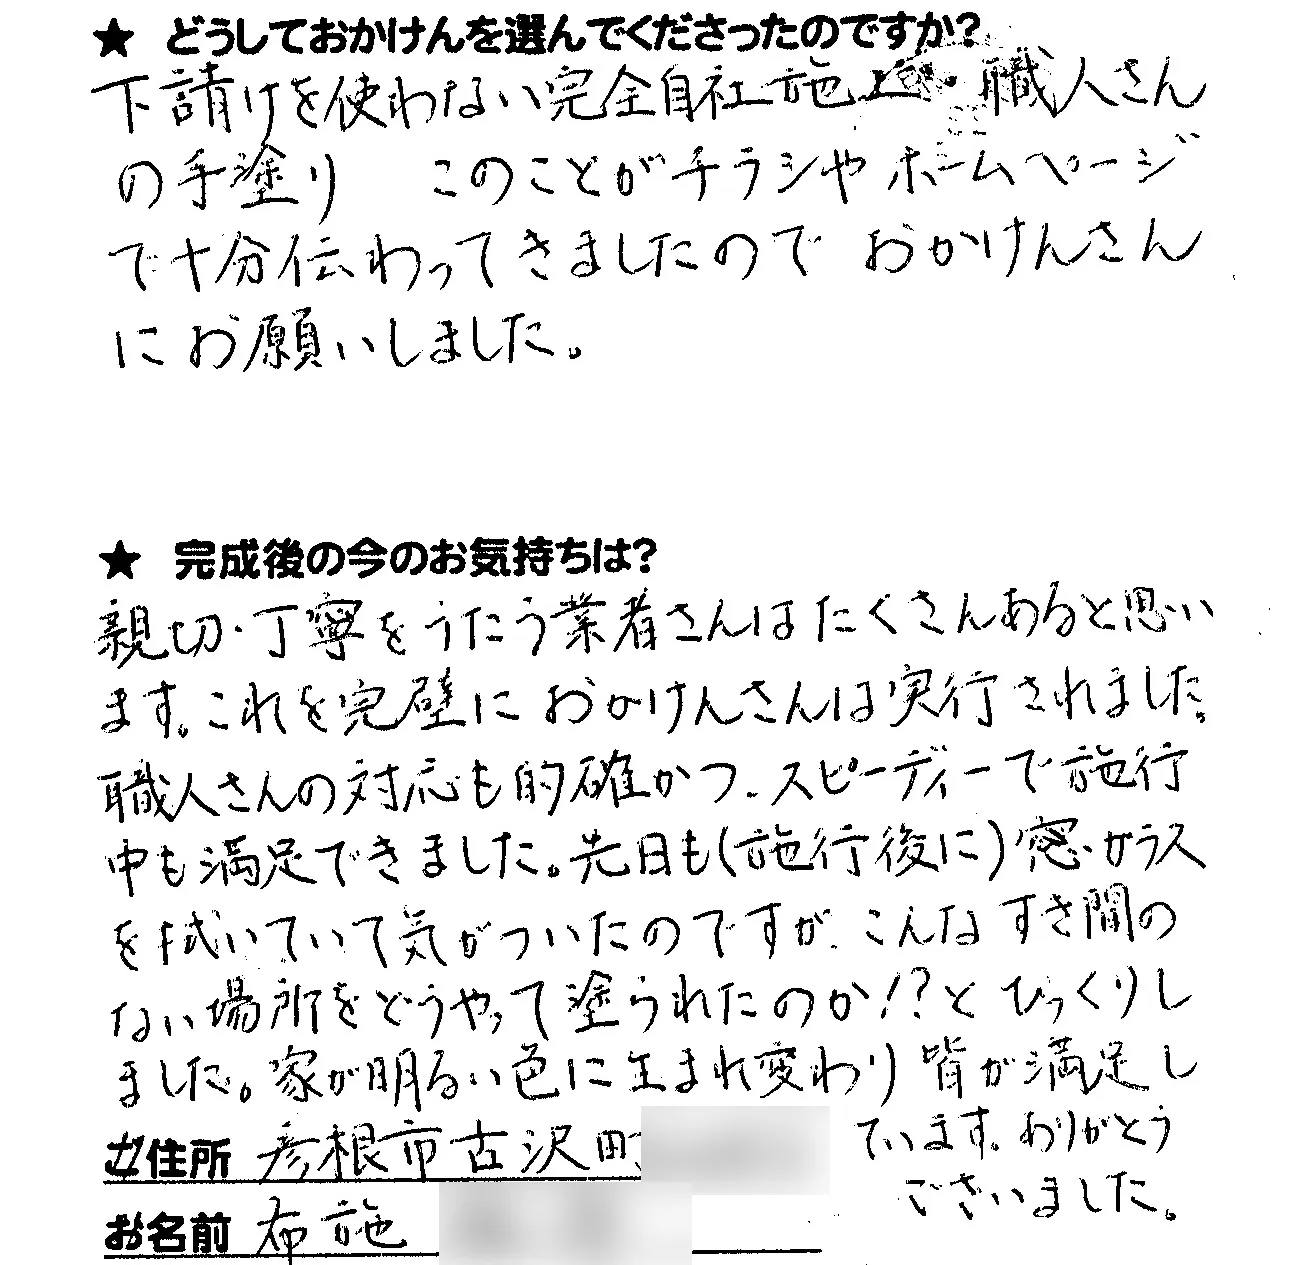 ★ どうしておかけんを選んでくださったのですか?
下請けを使わない完全自社施工・職人さん
の手塗り このことがチラシやホームページ
で十分伝わってきましたので おかけんさん
にお願いしました。
★ 完成後の今のお気持ちは?
親切・丁寧をうたう業者さんはたくさんあると思い
ます。これを完璧に おかけんさんは実行されました。
職人さんの対応も的確かつ、スピーディーで施行
中も満足できました。先日も(施行後に)窓・ガラス
を拭いていて気がついたのですが、こんな すき間の
ない場所をどうやって塗られたのか!?と びっくりし
ました。家が明るい色に生まれ変わり 皆が満足し
ています。ありがとう
ございました。
住所 彦根市古沢町
お名前 布施